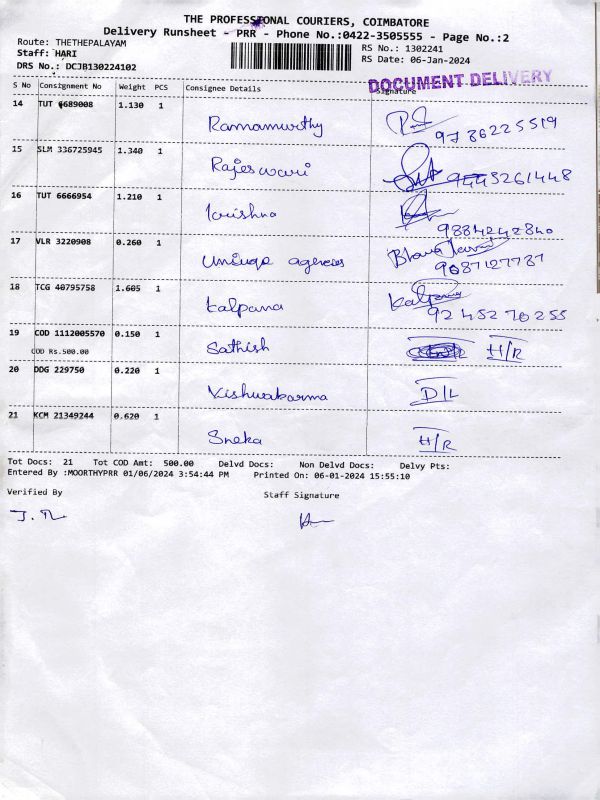 THE PROFESSIONAL COURIERS, COIMBATORE
Delivery Runsheet - PRR - Phone No.:0422-3505555 - Page No.:2
Route: THETHEPALAYAM
RS No.: 1302241
Staff: HARI
RS Date: 06-Jan-2024
DRS No.: DCJB130224102
DOCUMENT DELIVERY
S No Consignment No Weight PCS Consignee Details Signature
14 TUT 6689008 1.130 1
Ramamurthy 9786225519
15 SLM 336725945 1.340 1
Rajeswari 9443261448
16 TUT 6666954 1.210 1
krishna 9884242840
17 VLR 3220908 0.260 1
agencies 9087127737
18 TCG 40795758 1.605 1 Kalpana
kalpana 9245270255
19 COD 1112005570 0.150 1
COD Rs.500.00 Sathish H/R
20 DDG 229750 0.220 1
Vishwakarma D/L
21 KCM 21349244 0.620 1
Sneka H/R
Tot Docs: 21 Tot COD Amt: 500.00 Delvd Docs: Non Delvd Docs: Delvy Pts:
Entered By :MOORTHYPRR 01/06/2024 3:54:44 PM Printed On: 06-01-2024 15:55:10
Verified By Staff Signature